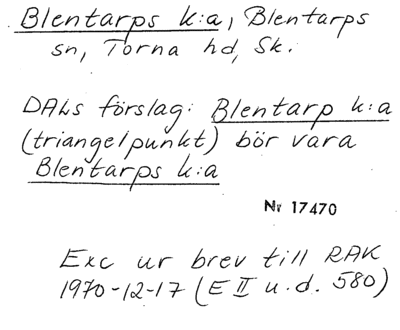 Blentarps k:a, Blentarps
sn, Torna hd, Sk.
DALs förslag: Blentarp k:a
(triangelpunkt) bör vara
Blentarps k:a
Nr 17470
Exc ur brev till RAK
1970-12-17 (E II u.d. 580)